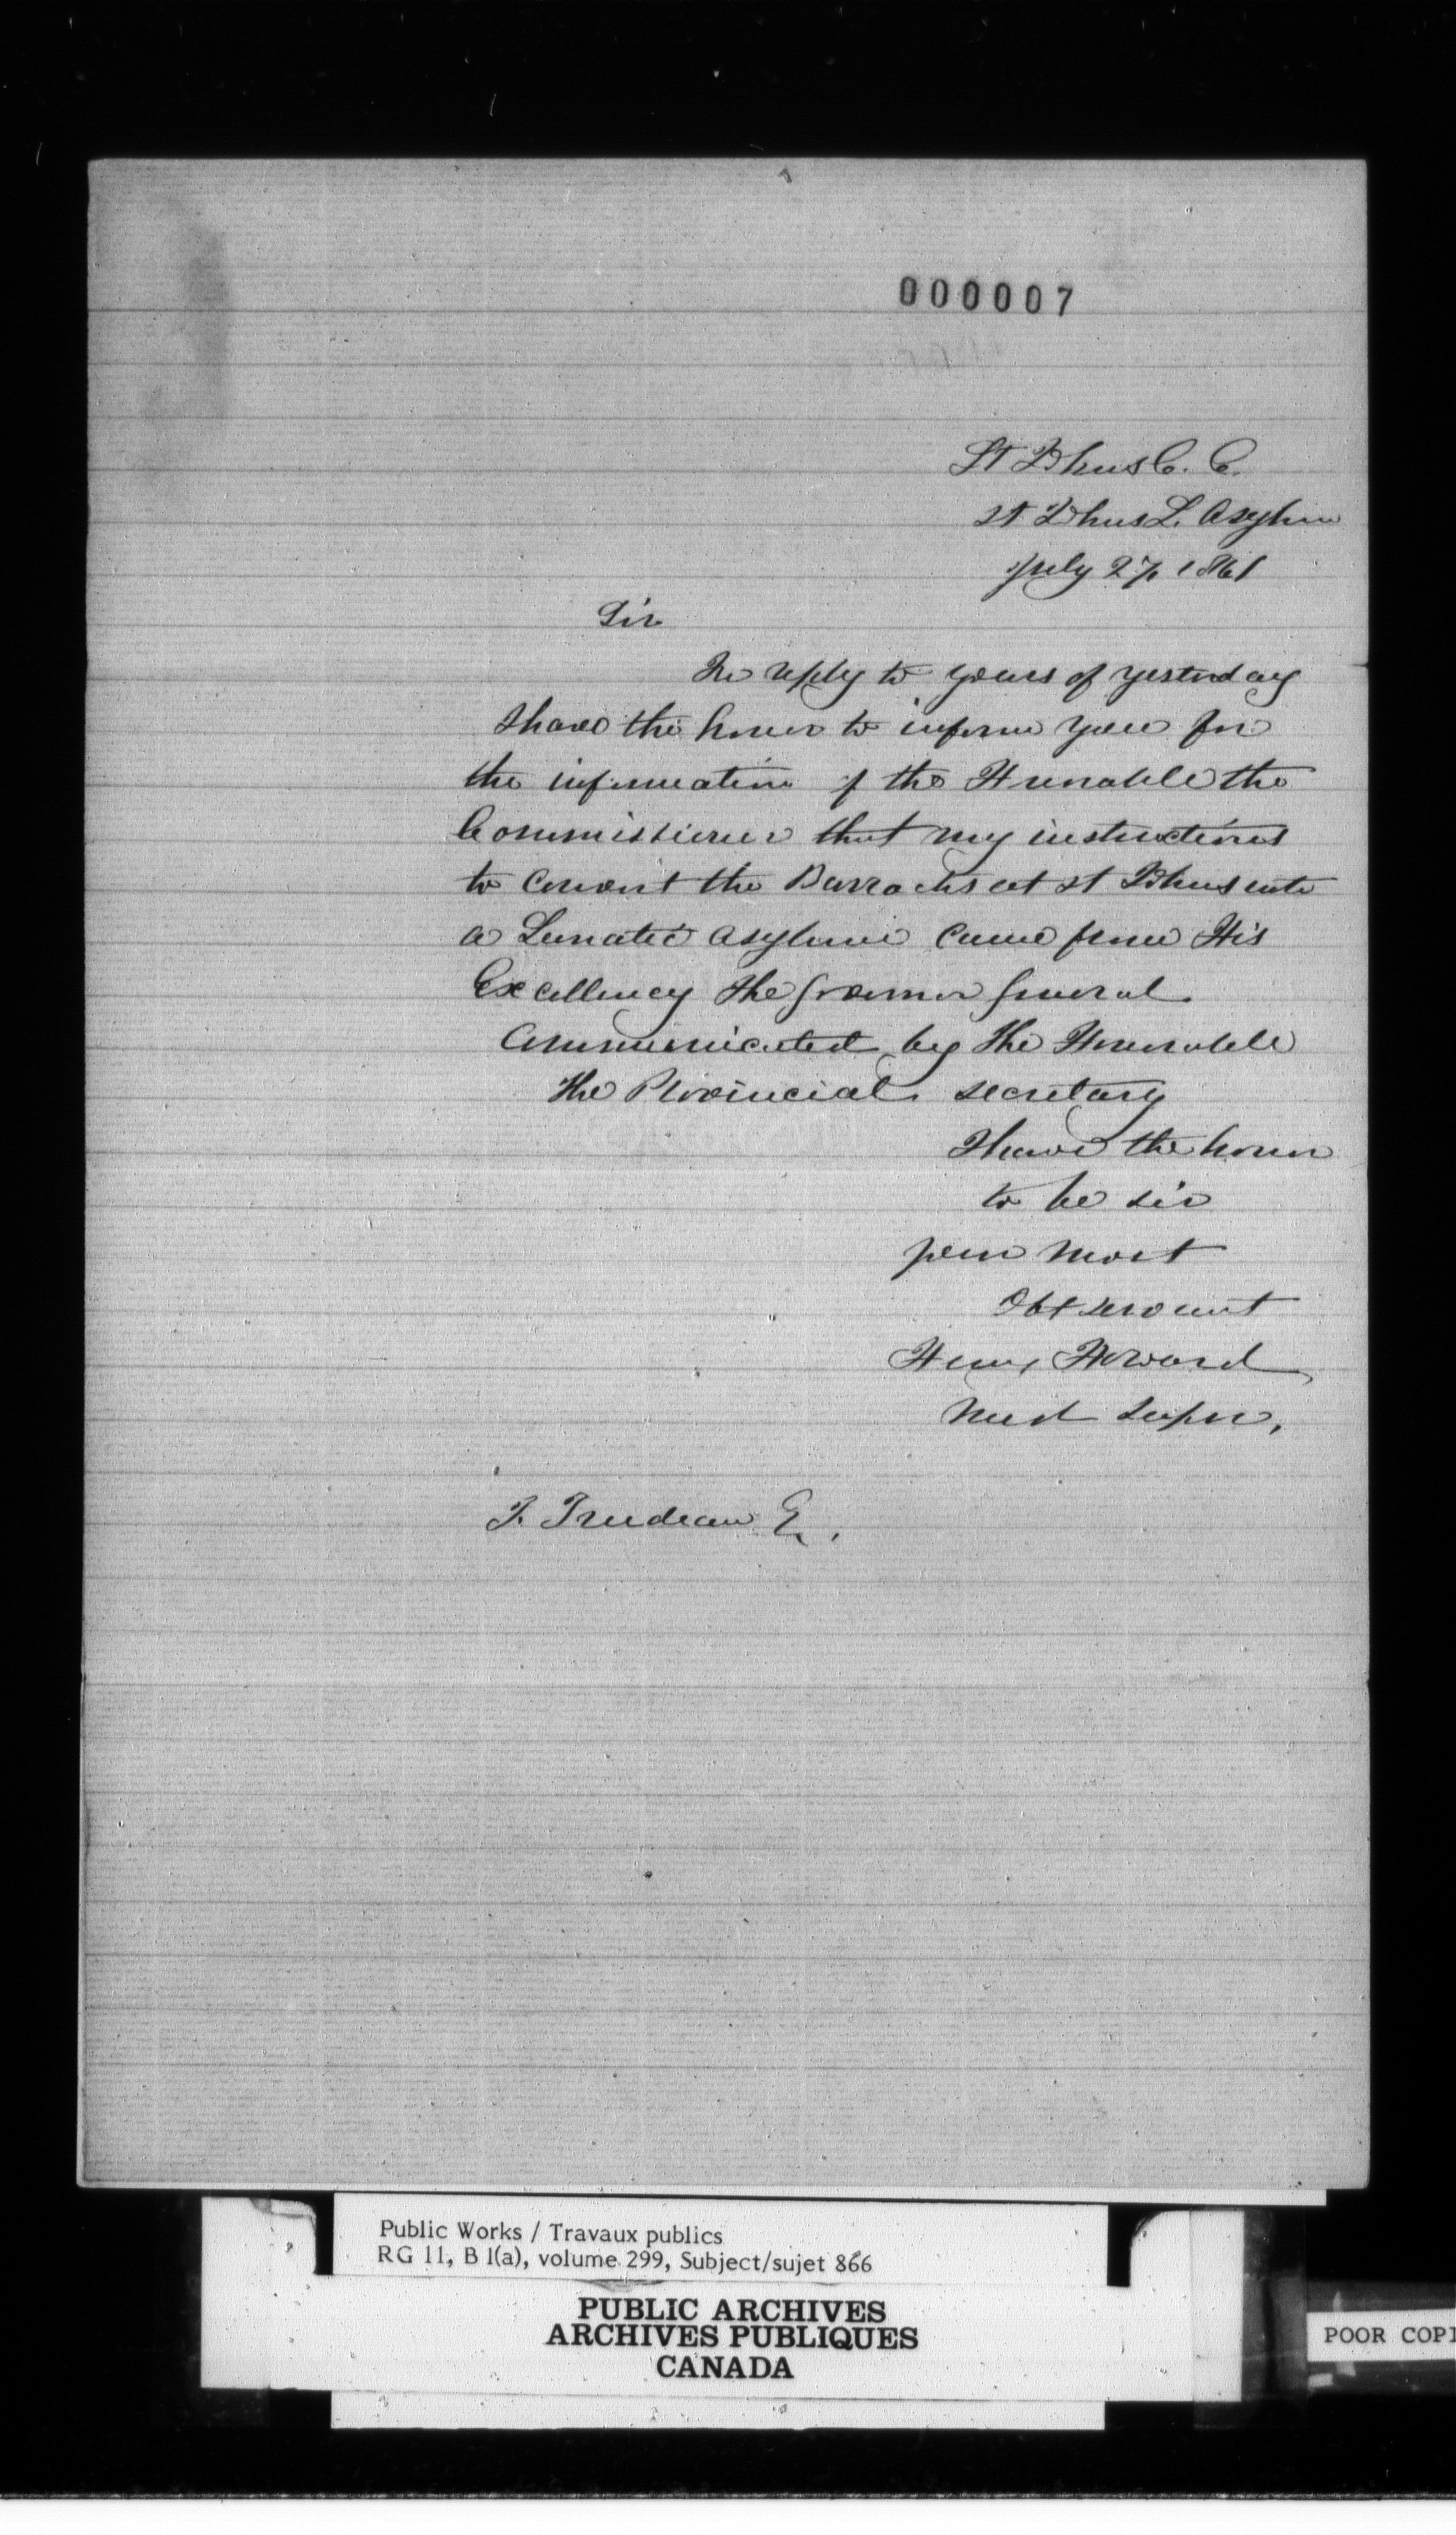 000007
St Johns C. E.
St Johns L. Asylum
July 27 1861
Sir
In reply to yours of yesterday
I have the honor to inform you for
the information of the Honorable the
Commissioner that my instructions
to convert the Barracks at St Johns into
a Lunatic Asylum came from His
Excellency the Governor General
communicated by the Honorable
the Provincial Secretary
I have the honor
to be Sir
your most
Obt servant
Henry Howard
Med Supr,
T. Trudeau E.
Public Works / Travaux publics
RG 11, B 1(a), volume 299, Subject/sujet 866
PUBLIC ARCHIVES
ARCHIVES PUBLIQUES
CANADA
POOR COPI